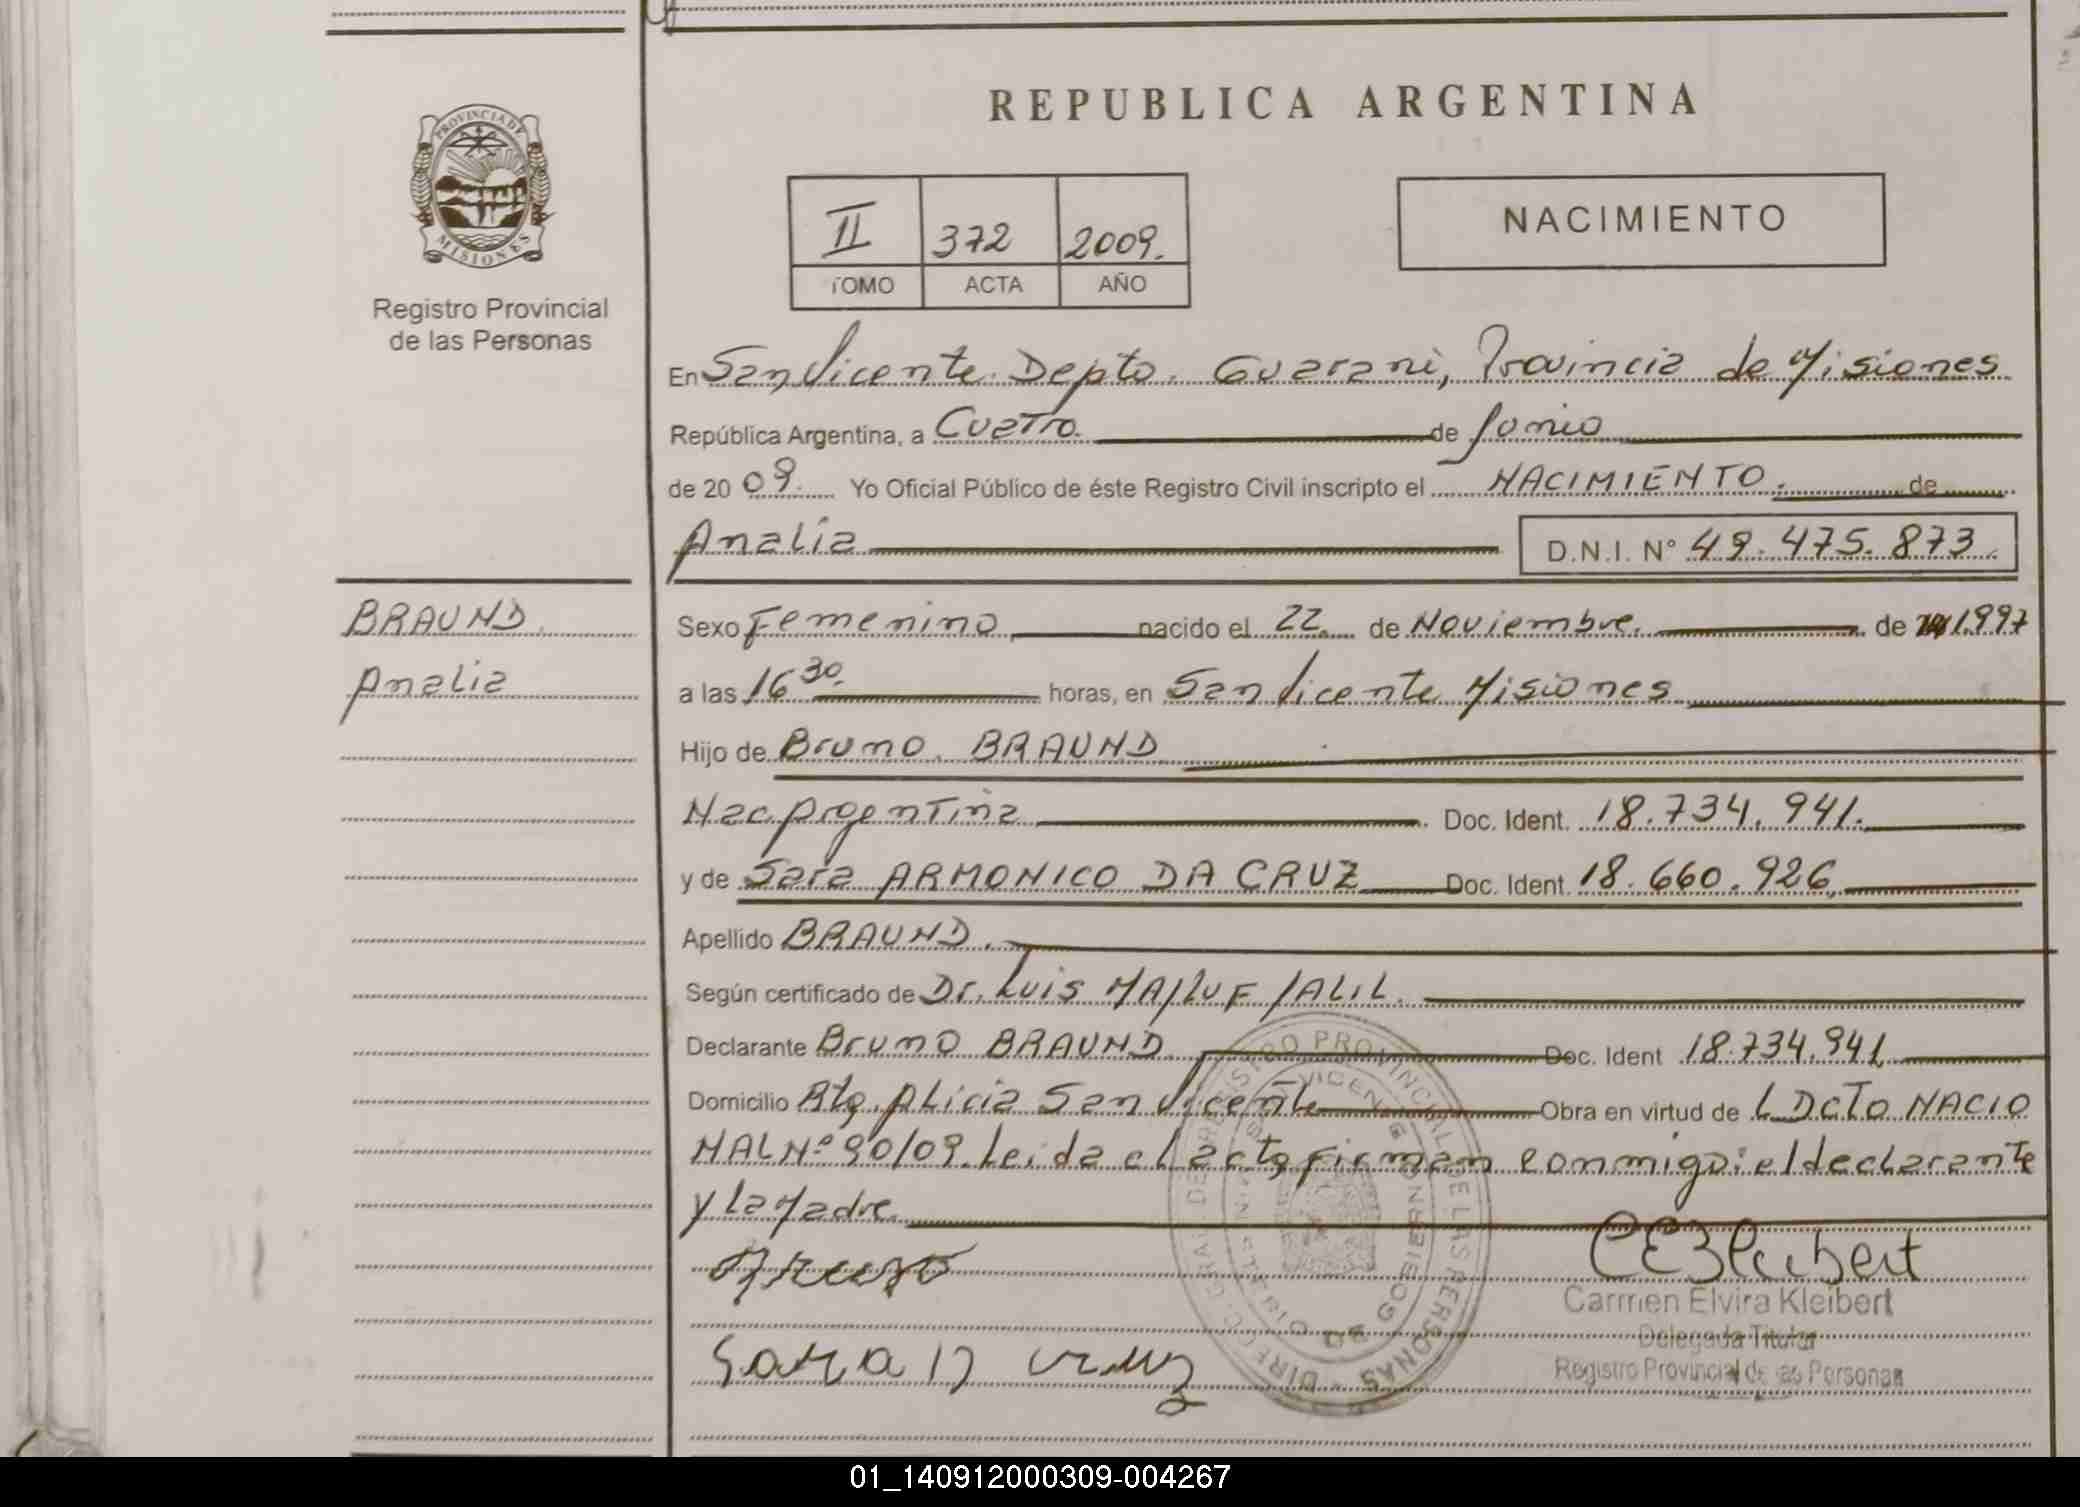 REPUBLICA ARGENTINA
PROVINCIA DE
MISIONES
Registro Provincial
de las Personas
II 372 2009.
TOMO ACTA AÑO
NACIMIENTO
En San Vicente Depto. Guarani, Provincia de Misiones
República Argentina, a Cuatro. de Junio
de 20 09. Yo Oficial Público de éste Registro Civil inscripto el NACIMIENTO. de
Analia D.N.I. N° 49.475.873.
BRAUND.
Analia
Sexo Femenino nacido el 22. de Noviembre. de 1.997
a las 16 30. horas, en San Vicente Misiones
Hijo de Bruno. BRAUND
Nac. Argentina Doc. Ident. 18.734.941.
y de Sara ARMONICO DA CRUZ Doc. Ident. 18.660.926,
Apellido BRAUND.
Según certificado de Dr. Luis MAJLUF JALIL.
Declarante Bruno BRAUND. Doc. Ident 18.734.941
Domicilio Rtg. Alicia San Vicente Obra en virtud de L DCTO NACIO
NAL Nº 90/09. Leida el acta firman conmigo: el declarante
y la Madre.
CEKleibert
Carmen Elvira Kleibert
Delegada Titular
Registro Provincial de las Personas
Sara D cruz
DIREC. GRAL. DE REGISTRO PROVINCIAL DE LAS PERSONAS
01_140912000309-004267